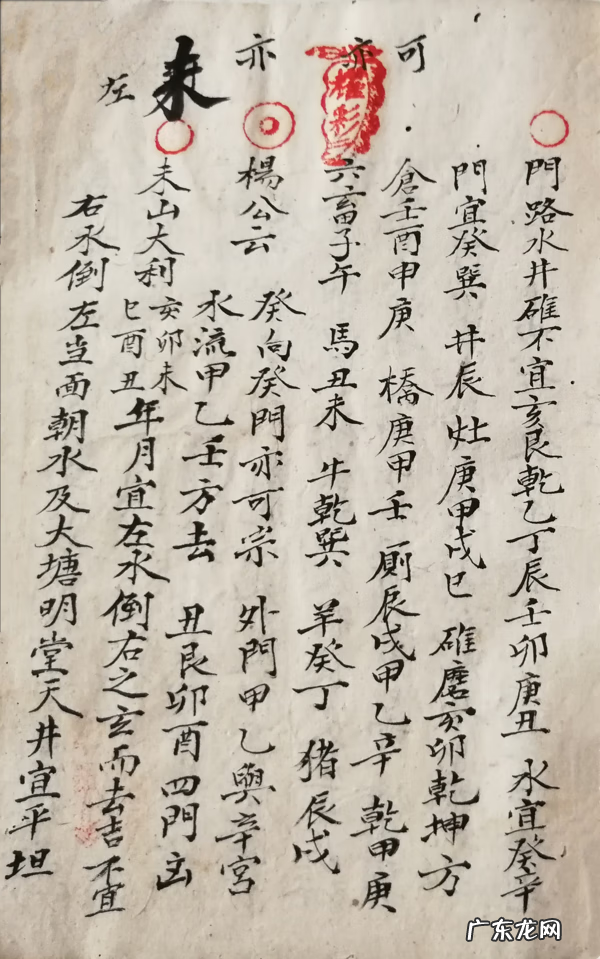 門路水井碓不宜亥艮乾乙丁辰壬卯庚丑 水宜癸辛
門宜癸巽 井辰 灶庚甲戌巳 碓磨亥卯乾坤方
可
倉壬酉甲庚 橋庚甲壬 厠辰戌甲乙辛 乾甲庚
亦
桂彩
六畜子午 馬丑未 牛乾巽 羊癸丁 猪辰戌
亦
楊公云 癸向癸門亦可宗 外門甲乙與辛宮
水流甲乙壬方去 丑艮卯酉四門凶
未
未山大利亥卯未巳酉丑年月宜左水倒右之玄而去吉不宜
左
右水倒左当面朝水及大塘明堂天井宜平坦
广东龙网
GDLONG.COM